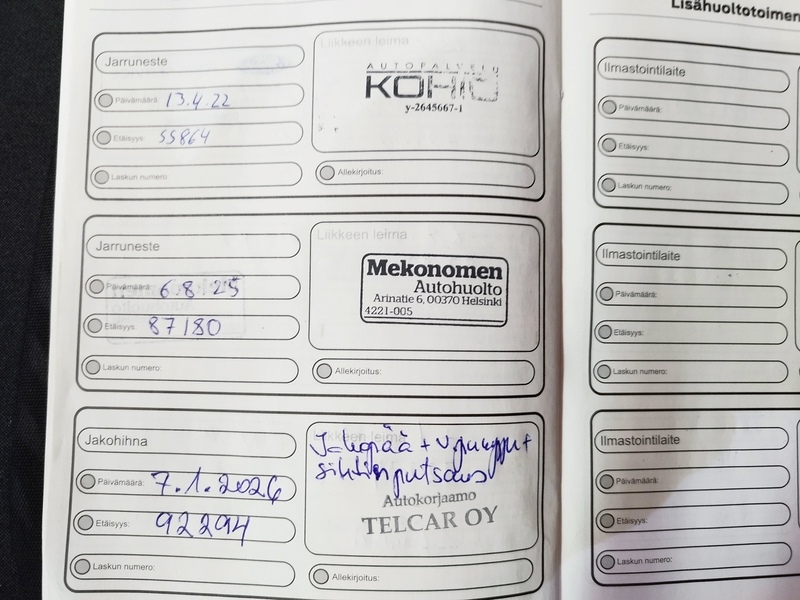 Lisähuoltotoimen
Jarruneste
Päivämäärä: 13.4.22
Etäisyys: 55864
Laskun numero:
Liikkeen leima
AUTOPALVELU
KOHIO
y-2645667-1
Allekirjoitus:
Jarruneste
Päivämäärä: 6.8.25
Etäisyys: 87180
Laskun numero:
Liikkeen leima
Mekonomen
Autohuolto
Arinatie 6, 00370 Helsinki
4221-005
Allekirjoitus:
Jakohihna
Päivämäärä: 7.1.2026
Etäisyys: 92294
Laskun numero:
Jakopää + v.pumppu +
sihdin putsaus
Autokorjaamo
TELCAR OY
Allekirjoitus:
Ilmastointilaite
Päivämäärä:
Etäisyys:
Laskun numero:
Ilmastointilaite
Päivämäärä:
Etäisyys:
Laskun numero:
Ilmastointilaite
Päivämäärä:
Etäisyys:
Laskun numero: